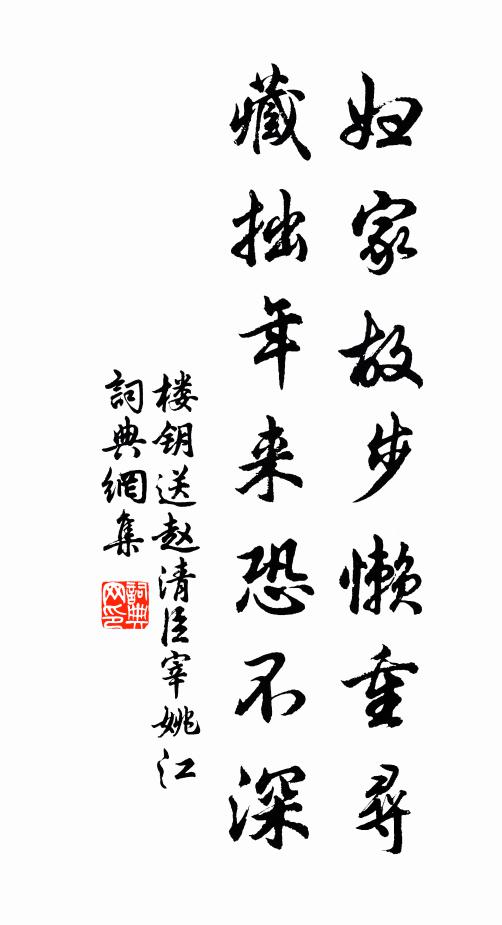 妇家故步懒重寻
藏拙年来恐不深
楼钥送赵清臣宰姚江
詞典網集
詞典网印